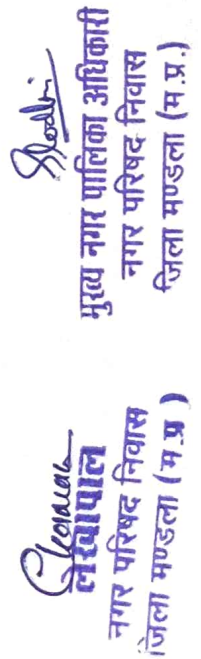 लेखापाल
नगर परिषद निवास
जिला मण्डला (म.प्र)
मुख्य नगर पालिका अधिकारी
नगर परिषद निवास
जिला मण्डला (म.प्र.)